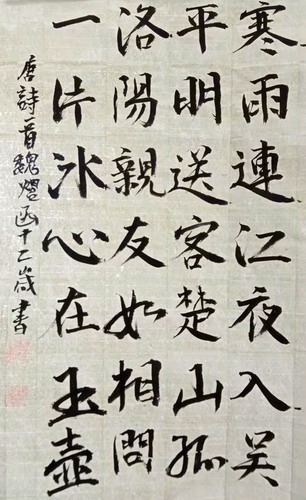 寒雨連江夜入吴
平明送客楚山孤
洛陽親友如相問
一片冰心在玉壺
唐詩一首魏熠函十二歲書